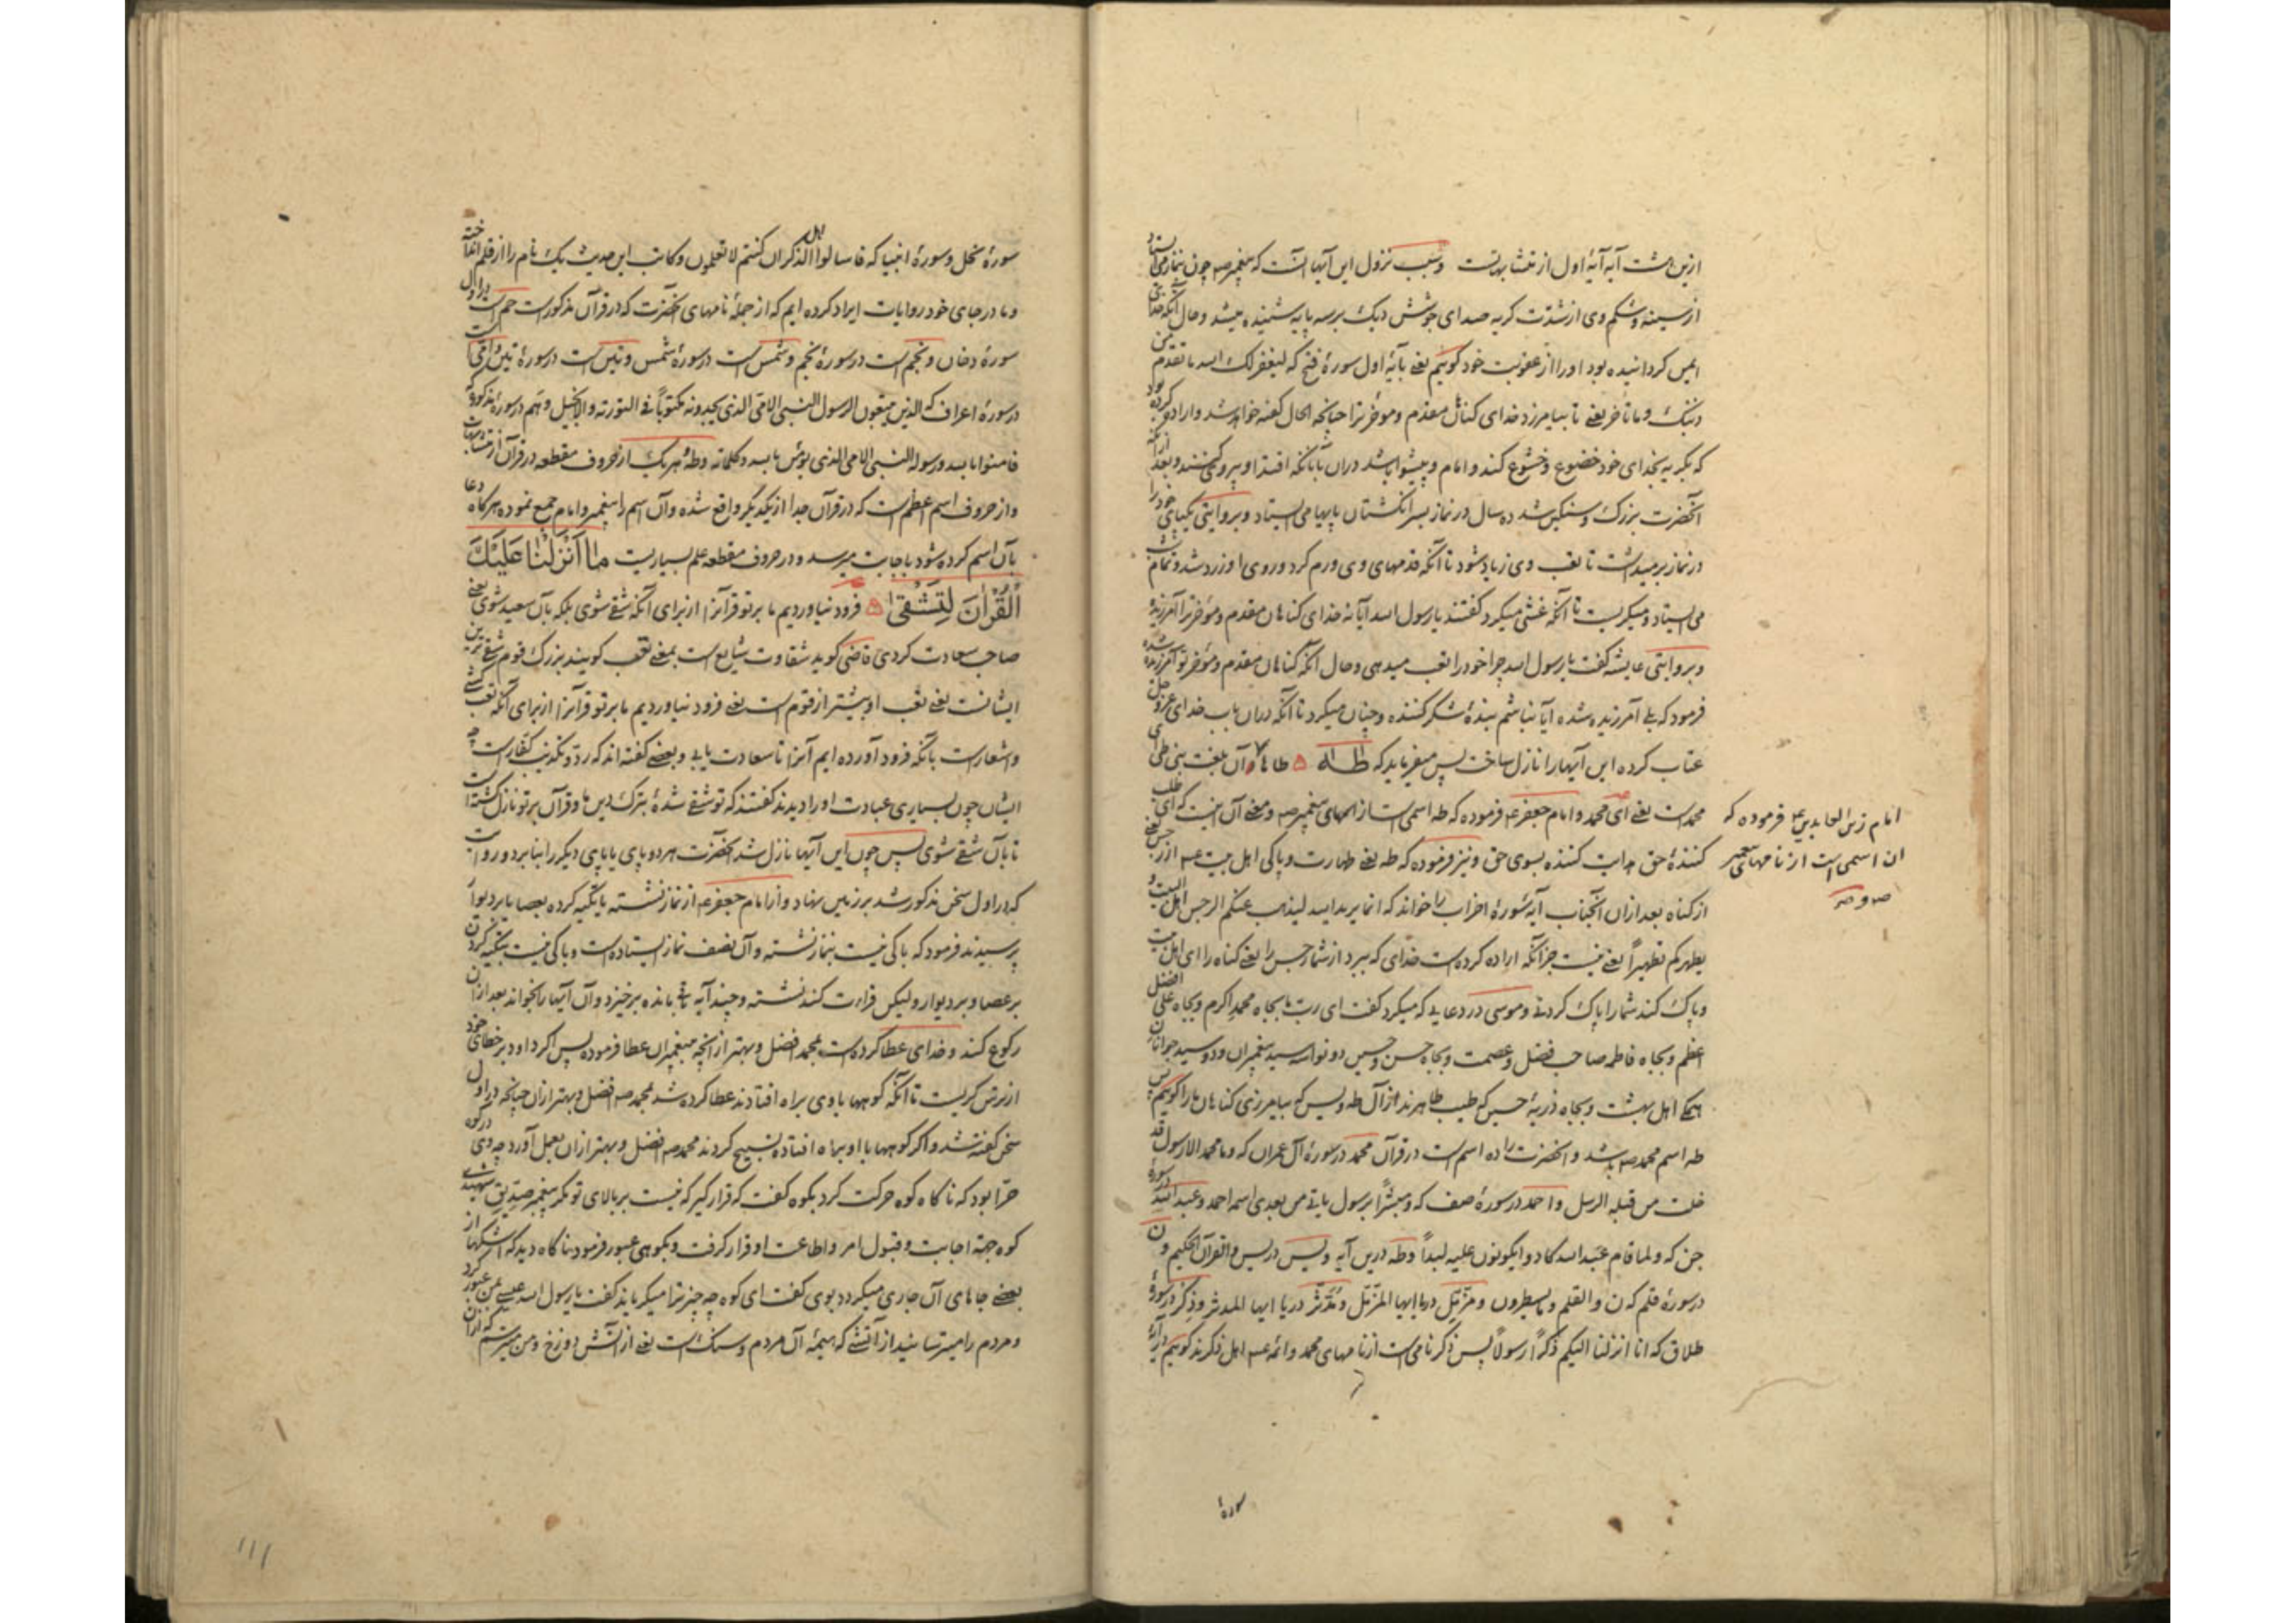 ازین هشت آیه آیهٔ اول از متشابهاتست و سبب نزول این آیها آنست که پیغمبر صه چون بنماز می ایستاد
از سینه و شکم وی از شدّت کریه صدای جوشش دیک برسه پایه شنیده میشد و حال آنکه خدا
ایمن کردانیده بود او را از عقوبت خود کوییم یعنی بآیهٔ اول سورهٔ فتح که لیغفر لک الله ما تقدم من
ذنبک و ما تاخر یعنی تا بیامرزد خدای کناهان مقدم و موخر ترا چنانچه الحال کفته خواهد شد و اراده کرده بود
که بکریه بخدای خود خضوع و خشوع کند و امام و پیشوا باشد دران بآنانکه اقتدا و پیروی کنند و بعد از آنکه
آنحضرت بزرک و سنکین شد ده سال در نماز بسر انکشتان پایها می ایستاد و بروایتی یکپای خود را
در نماز برمیداشت تا تعب وی زیاد شود تا آنکه قدمهای وی ورم کرد و روی او زرد شد و تمام شب
می ایستاد و میکریست تا آنکه غشی میکرد کفتند یا رسول الله آیا نه خدای کناهان مقدم و موخر ترا آمرزیده
و بروایتی عایشه کفت یا رسول الله چرا خود را تعب میدهی و حال آنکه کناهان مقدم و موخر تو آمرزیده شده
فرمود که بلی آمرزیده شده آیا نباشم بندهٔ شکر کننده و چنان میکرد تا آنکه دران باب خدای عز و جل
عتاب کرده این آیها را نازل ساخت پس میفرماید که طه ۵ طا ها و آن بلغت بنی طی ای
محمد است یعنی ای محمد و امام جعفر ع فرموده که طه اسمی است از اسمهای پیغمبر صه و معنی آن اینست که ای طلب
کنندهٔ حق هدایت کننده بسوی حق و نیز فرموده که طه یعنی طهارت و پاکی اهل بیت عم از رجس یعنی
از کناه بعد ازان آنجناب آیهٔ سورهٔ احزاب را خواند که انما یرید الله لیذهب عنکم الرجس اهل البیت و
یطهرکم تطهیراً یعنی نیست جز آنکه اراده کرده است خدای که ببرد از شما رجس را یعنی کناه را ای اهل بیت
و پاک کند شما را پاک کردنی و موسی در دعایی که میکرد کفت ای رب ما بجاه محمد اکرم و بجاه علی افضل
اعظم و بجاه فاطمه صاحب فضل و عصمت و بجاه حسن و حسین دو نواسه سید پیغمبران و دو سید جوانان
همکی اهل بهشت و بجاه ذریهٔ حسین که طیب طاهرند از آل طه و یس که بیامرزی کناهان ما را کوییم پس
طه اسم محمد صه باشد و آنحضرت را ده اسم است در قرآن محمد در سورهٔ آل عمران که و ما محمد الا رسول قد
خلت من قبله الرسل و احمد در سورهٔ صف که و مبشراً برسول یاتی من بعدی اسمه احمد و عبد الله در سورهٔ
جن که و لما قام عبد الله کادوا یکونون علیه لبداً و طه درین آیه و یس در یس و القرآن الحکیم و ن
در سورهٔ قلم که ن و القلم و ما یسطرون و مزّمّل در یا ایها المزّمّل و مدّثّر در یا ایها المدثر و ذکر در سورهٔ
طلاق که انا انزلنا الیکم ذکراً رسولاً پس ذکر نامی است از نامهای محمد و ائمه عم اهل ذکرند کوییم در آیهٔ
سورهٔ
امام زین العابدین ع فرموده که
ان اسمی است از نامهای پیغمبر
صه و صر
سورهٔ نحل و سورهٔ انبیا که فاسالوا اهل الذکر ان کنتم لا تعلمون و کاتب این حدیث یک نام را از قلم انداخته
و ما در جای خود روایات ایراد کرده ایم که از جملهٔ نامهای آنحضرت که در قرآن مذکور است حم است در اول
سورهٔ دخان و نجم است در سورهٔ نجم و شمس است در سورهٔ شمس و تین است در سورهٔ تین و امّی است
در سورهٔ اعراف که الذین یتبعون الرسول النبی الامی الذی یجدونه مکتوباً فی التوریة و الانجیل و هم در سورهٔ مذکوره
فامنوا بالله و رسوله النبی الامی الذی یؤمن بالله و کلماته و طه هر یک از حروف مقطعه در قرآن از متشابهات
و از حروف اسم اعظم است که در قرآن جدا از یکدیکر واقع شده و آن اسم را پیغمبر و امام جمع نموده هرکاه دعا
بآن اسم کرده شود باجابت میرسد و در حروف مقطعه علم بسیاریست ما اَنْزَلْنا عَلَیْکَ
الْقُرْانَ لِتَشْقی ۵ فرود نیاوردیم ما بر تو قرآنرا از برای آنکه شقی شوی بلکه بآن سعید شوی یعنی
صاحب سعادت کردی قاضی کوید شقاوت شایع است بمعنی تعب کویند بزرک قوم شقی ترین
ایشانست یعنی تعب او بیشتر از قوم است یعنی فرود نیاوردیم ما بر تو قرآنرا از برای آنکه تعب کشی
و اشعار است بآنکه فرود آورده ایم آنرا تا سعادت یابی و بعضی کفته اند که ردّ و تکذیب کفّار است چه
ایشان چون بسیاری عبادت او را دیدند کفتند که تو شقی شدهٔ بترک دین ما و قرآن بر تو نازل کشته است
تا بآن شقی شوی پس چون این آیها نازل شد آنحضرت هر دو پای یا پای دیکر را بنا بر دو روایت
که در اول سخن مذکور شد بر زمین نهاد و از امام جعفر ع از نماز نشسته یا تکیه کرده بعصا یا بر دیوار
پرسیدند فرمود که باکی نیست بنماز نشسته و آن نصف نماز ایستاده است و باکی نیست بتکیه کردن
بر عصا و بر دیوار و لیکن قراءت کند نشسته و چند آیه باقی مانده برخیزد و آن آیها را بخواند بعد ازان
رکوع کند و خدای عطا کرده است بمحمد افضل و بهتر از آنچه پیغمبران عطا فرموده پس اکر داود بر خطای خود
از ترس کریست تا آنکه کوهها با وی براه افتادند عطا کرده شد بمحمد صه افضل و بهتر ازان چنانچه در اول
سخن کفته شد و اکر کوهها با او براه افتاده تسبیح کردند محمد صه افضل و بهتر ازان بعمل آورد چه وی در کوه
حرّا بود که ناکاه کوه حرکت کرد بکوه کفت که قرار کیر که نیست بر بالای تو مکر پیغمبر صدّیق شهیدی
کوه جهة اجابت و قبول امر و اطاعت او قرار کرفت و بکوهی عبور فرمود ناکاه دید که اشکها از
بعضی جاهای آن جاری میکردد بوی کفت ای کوه چه چیز ترا میکریاند کفت یا رسول الله عیسی بمن عبور کرد
و مردم را میترسانید از آتشی که هیمهٔ آن مردم و سنک است یعنی از آتش دوزخ و من میترسم که ازان
۱۱۱